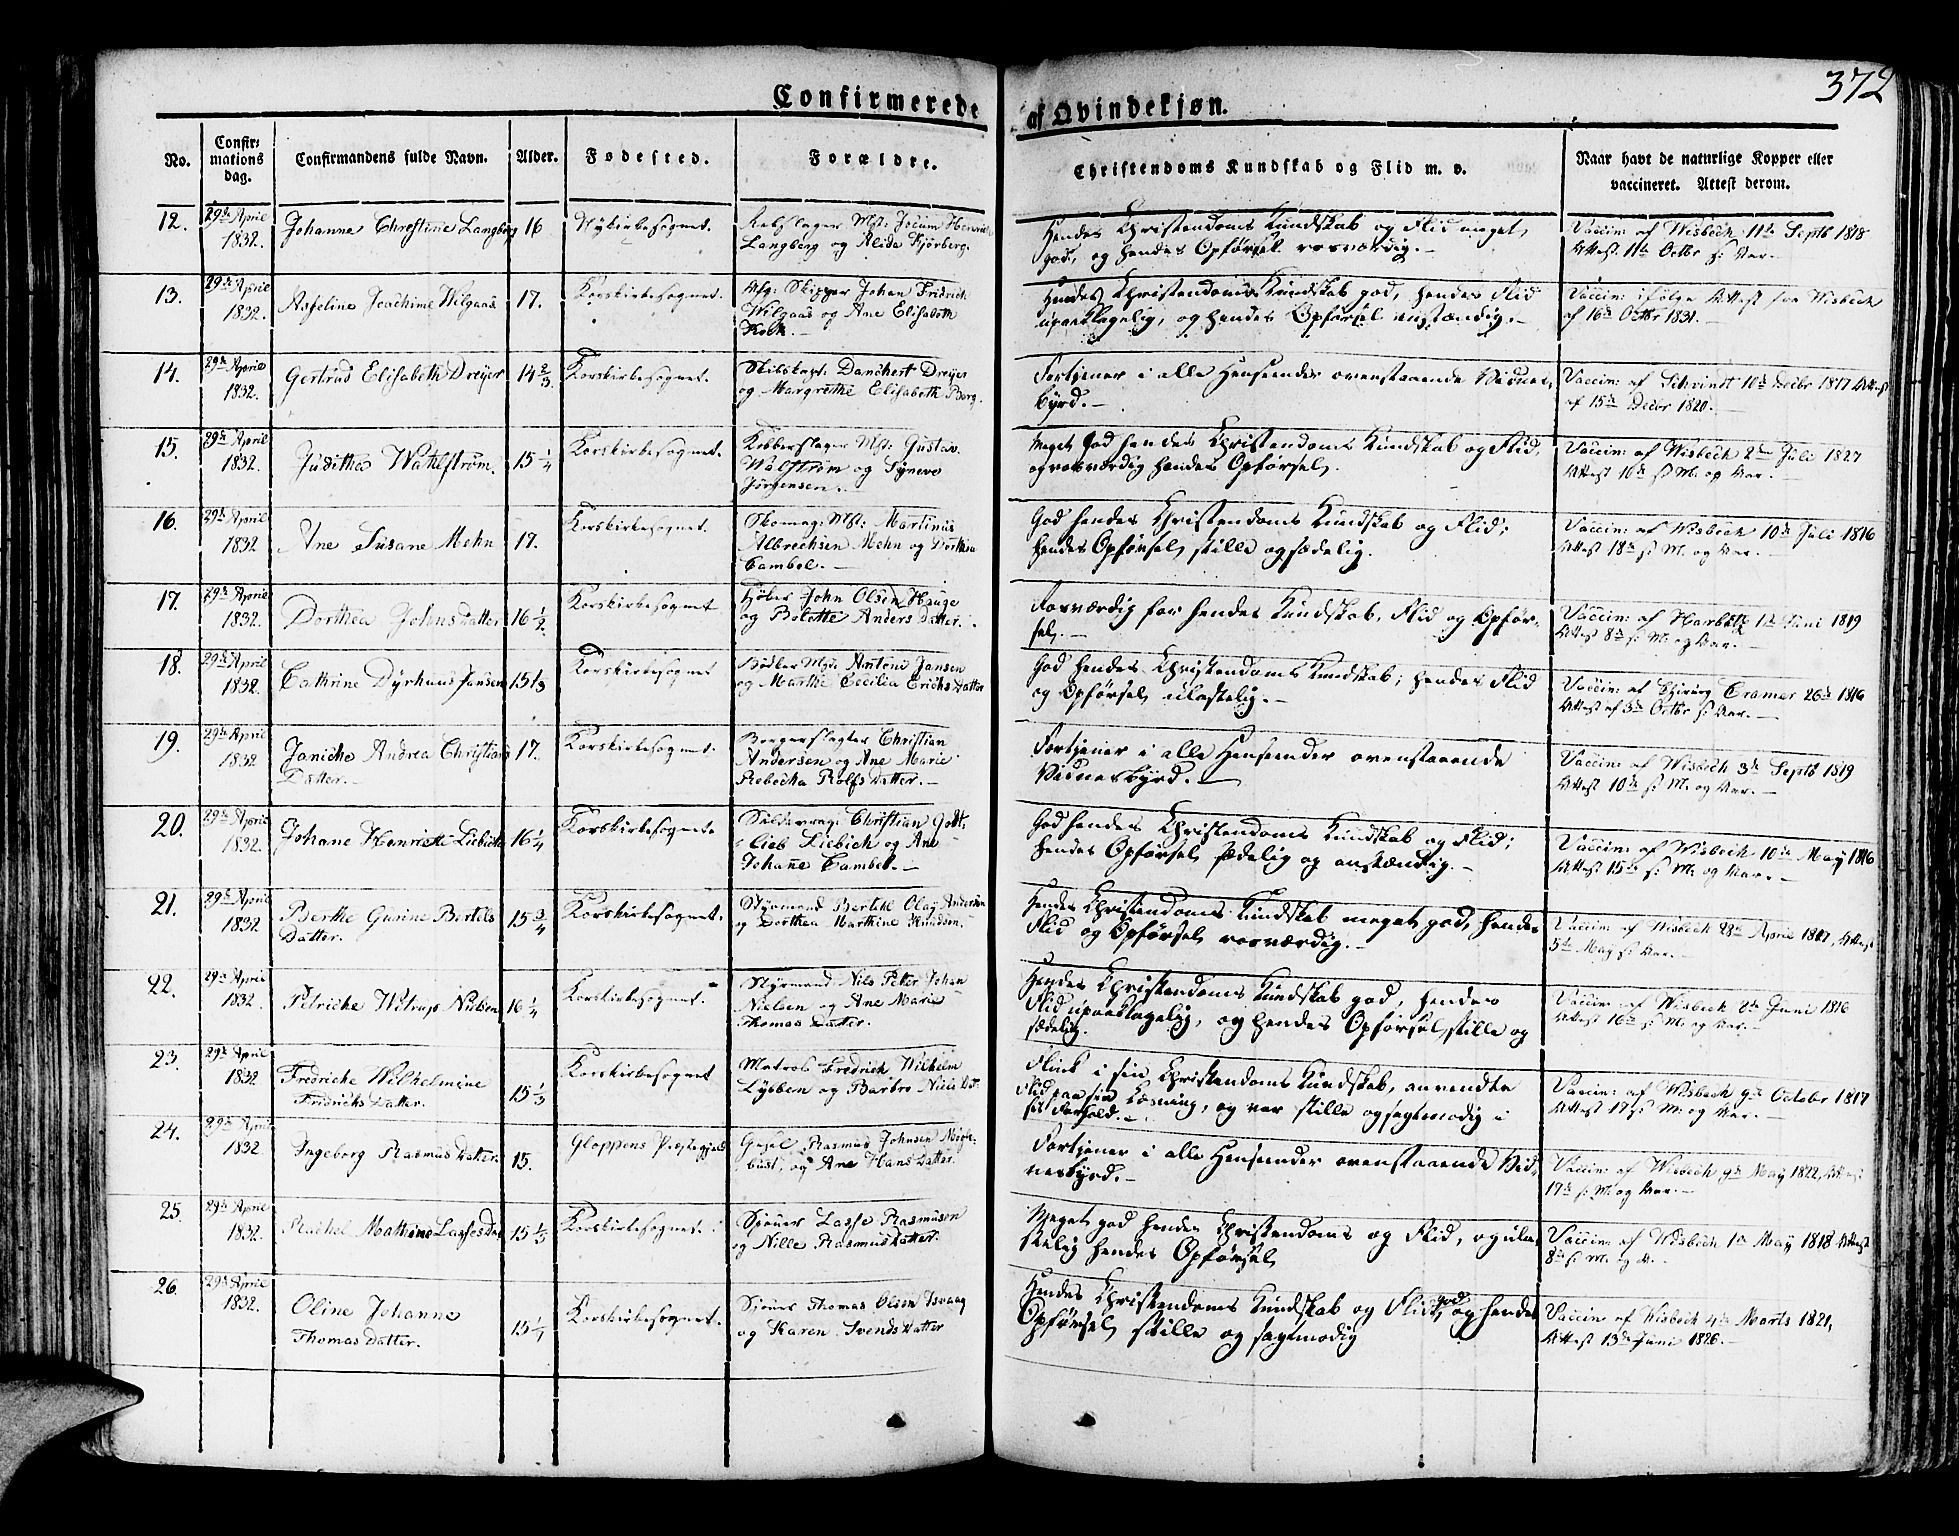 372
Confirmerede af Qvindekjøn.
No.
Confir-
mations
dag.
Confirmandens fulde Navn.
Alder.
Fødested.
Forældre.
Christendoms Kundskab og Flid m. v.
Naar havt de naturlige Kopper eller
vaccineret. Attest derom.
12.
29de April
1832.
Johanne Christine Langberg
16
Nykirkesognet.
Rebslager Mst: Jocum Henrich
Langberg og Alida Kjørberg.
Hendes Christendoms Kundskab og Flid meget
god, og hendes Opførsel rosværdig.
Vaccin: af Wisbech 11te Septb 1818
Attest 11te Octbr s: Aar.
13.
29de April
1832.
Joachime Wilgaas
17.
Korskirkesognet.
Afg: Skipper Johan Fridrich
Wilgaas og Ane Elisabeth
Kock.
Hendes Christendoms Kundskab god, hendes Flid
upaaklagelig, og hendes Opførsel anstændig.
Vaccin: ifølge Attest fra Wisbech
af 16de Octbr 1831.
14.
29de April
1832.
Gertrud Elisabeth Dreyer
14 2/3
Korskirkesognet.
Skibskapt: Danchert Dreyer
og Margrethe Elisabeth Berg.
Fortjener i alle Henseender ovenstaaende Vidnes-
byrd.
Vaccin: af Schvindt 10de Decbr 1817 Attest
af 15de Decbr 1820.
15.
29de April
1832.
Juditha Wahlstrøm.
15 1/4
Korskirkesognet.
Kobberslager Mst: Gustav
Walstrøm og Syneve
Jørgensen.
Meget god hendes Christendoms Kundskab og Flid,
og rosværdig hendes Opførsel.
Vaccin: af Wisbech 2den Juli 1827
Attest 10de s: M. og Aar.
16.
29de April
1832
Ane Susane Mehn
17.
Korskirkesognet.
Skomag: Mst: Martinus
Albrechsen Mehn og Dorthea
Cambel.
God hendes Christendoms Kundskab og Flid;
hendes Opførsel stille og sædelig.
Vaccin: af Wisbech 10de Juli 1816
Attest 18de s: M. og Aar.
17.
29de April
1832.
Dorthea Johns Datter
16 1/2.
Korskirkesognet
John Olsen Hauge
og Bolette Anders Datter.
Rosværdig for hendes Kundskab, Flid og Opfør-
sel.
Vaccin: af 1te Juni 1819
Attest 8de s: M. og Aar.
18.
29de April
1832.
Cathrine Dyrhuus Jansen
15 1/3
Korskirkesognet
Bødker Mst: Antoni Jansen
og Marthe Cecilia Erichs Datter
God hendes Christendoms Kundskab; hendes Flid
og Opførsel ulastelig.
Vaccin: af Chirurg Cramer 26de 1816
Attest af 3de Octbr s: Aar.
19.
29de April
1832
Janiche Andrea Christians
Datter.
17.
Korskirkesognet.
Borgerslagter Christian
Andersen og Ane Marie
Rebecka Rolfs Datter.
Fortjener i alle Henseender ovenstaaende
Vidnesbyrd.
Vaccin: af Wisbech 3de Septb 1819
Attest 10de s: M. og Aar.
20.
29de April
1832.
Johane Henriette Liebich
16 1/4
Korskirkesognet.
Christian Gott-
lieb Liebich og Ane
Johane Cambel.
God hendes Christendoms Kundskab og Flid;
hendes Opførsel sædelig og anstændig.
Vaccin: af Wisbech 10de May 1816
Attest 15de s: M. og Aar.
21.
29de April
1832.
Berthe Gurine Bertels
Datter.
15 3/4
Korskirkesognet.
Styrmand Bertel Olay Andersen
og Dorthea Marthine Knudsen.
Hendes Christendoms Kundskab meget god, hendes
Flid og Opførsel rosværdig.
Vaccin: af Wisbech 28de April 1817, Attest
5te May s: Aar.
22.
29de April
1832.
Petriche Witrup Nielsen
16 1/4
Korskirkesognet.
Styrmand Nils Petter Johan
Nielsen og Ane Marie
Thomas Datter.
Hendes Christendoms Kundskab god, hendes
Flid upaaklagelig, og hendes Opførsel stille og
sædelig.
Vaccin: af Wisbech 2de Juni 1816
Attest 16de s: M. og Aar.
23.
29de April
1832
Fredriche Wilhelmine
Fredrichs Datter.
15 1/3
Korskirkesognet
Matros Fredrich Wilhelm
Lybben og Barbro Niels Dat.
Flink i sin Christendoms Kundskab, anvendte
Flid paa sin Læsning, og var stille og sagtmodig i
sit Forhold.
Vaccin: af Wisbech 9de October 1817
Attest 17de s: M. og Aar.
24.
29de April
1832.
Ingeborg Rasmus Datter
15.
Gloppens Præstegjeld
Rasmus Johnsen
bust, og Ane Hans Datter.
Fortjener i alle Henseender ovenstaaende Vid-
nesbyrd.
Vaccin: af Wisbech 9de May 1822, Attest
17de s: M. og Aar.
25.
29de April
1832.
Rachel Mathine Lasses Dat
15 1/3
Korskirkesognet.
Sjouer Lasse Rasmusen
og Nille Rasmus Datter.
Meget god hendes Christendoms og Flid, og ula-
stelig hendes Opførsel
Vaccin: af Wisbech 1te May 1818 Attest
8de s: M. og A.
26.
29de April
1832.
Oline Johanne
Thomas Datter.
15 1/4
Korskirkesognet.
Sjouer Thomas Olsen
og Karen Svends Datter
Hendes Christendoms Kundskab og Flid god og hendes
Opførsel stille og sagtmodig
Vaccin: af Wisbech 4de Marts 1821,
Attest 13de Juni 1826.